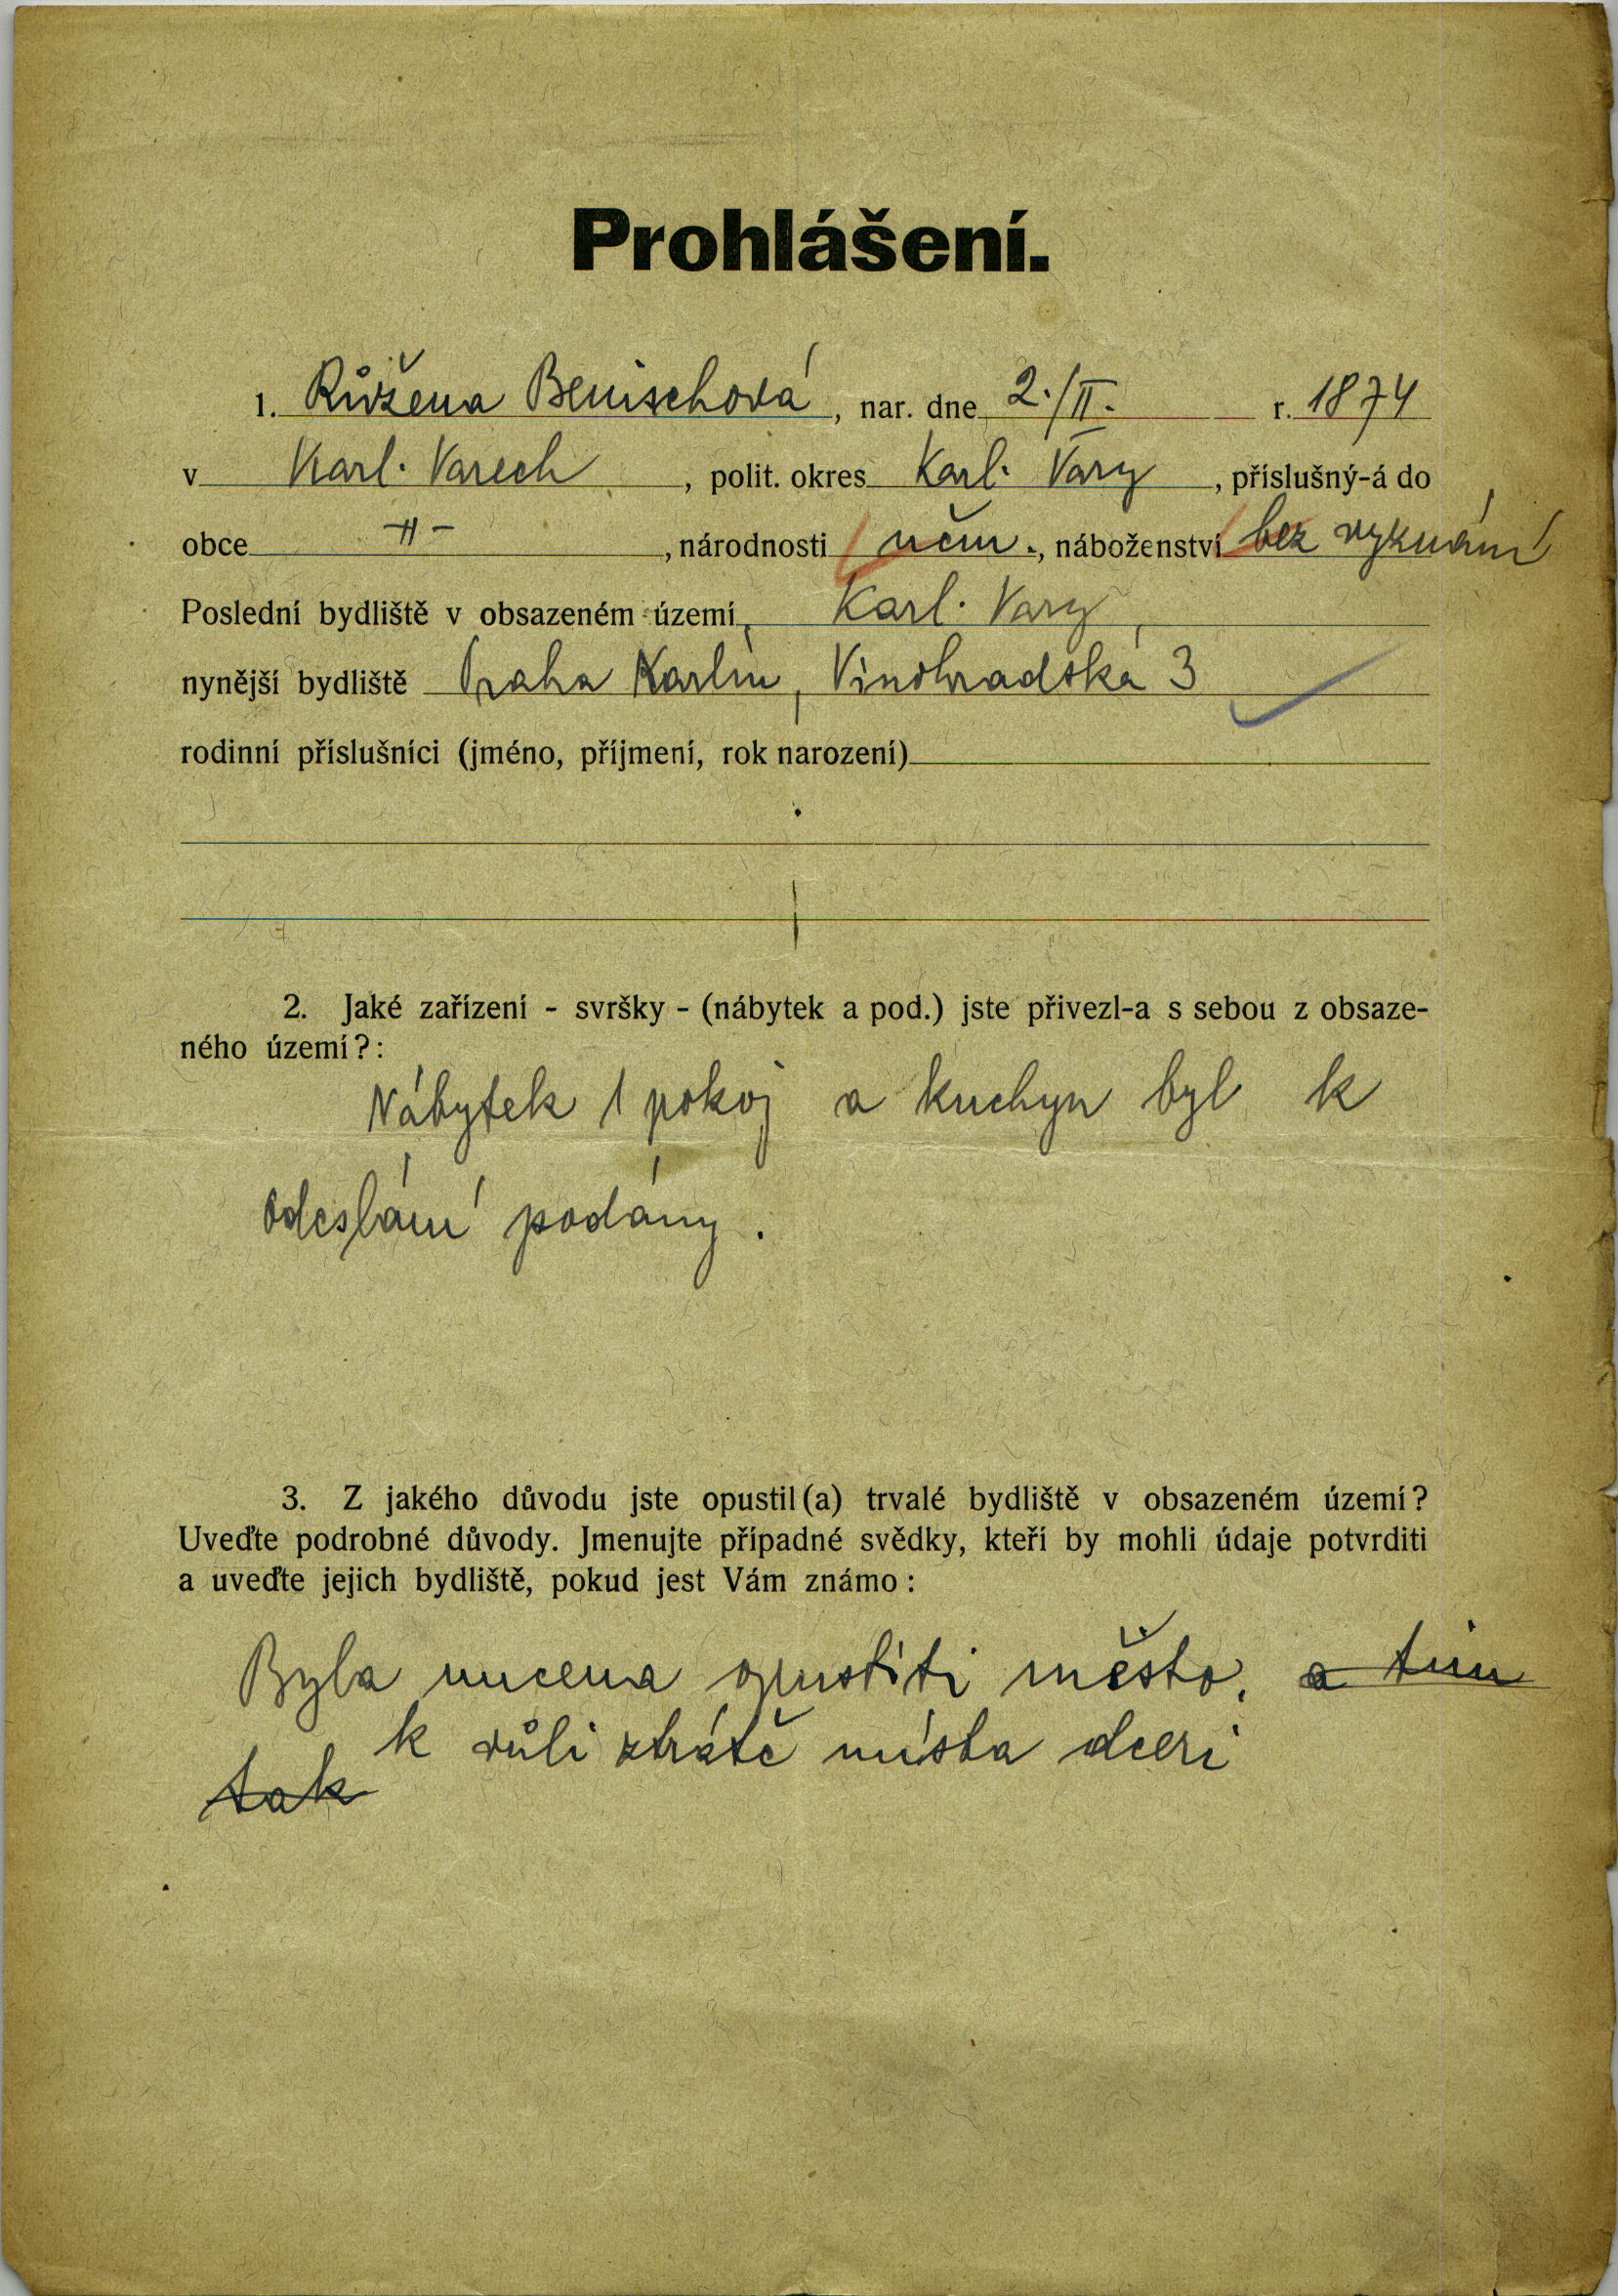 Prohlášení.
1. Růžena Benischová, nar. dne 2./II. r. 1874
v Karl. Varech, polit. okres Karl. Vary, příslušný-á do
obce -〃-, národnosti něm., náboženství bez vyznání
Poslední bydliště v obsazeném území, Karl. Vary,
nynější bydliště Praha Karlín, Vinohradská 3
rodinní příslušníci (jméno, příjmení, rok narození)
2. Jaké zařízení - svršky - (nábytek a pod.) jste přivezl-a s sebou z obsaze-
ného území?:
Nábytek 1 pokoj a kuchyn byl k
odeslání podány.
3. Z jakého důvodu jste opustil(a) trvalé bydliště v obsazeném území?
Uveďte podrobné důvody. Jmenujte případné svědky, kteří by mohli údaje potvrditi
a uveďte jejich bydliště, pokud jest Vám známo:
Byla nucena opustiti město, a tím
k vůli ztrátě místa dceri
tak